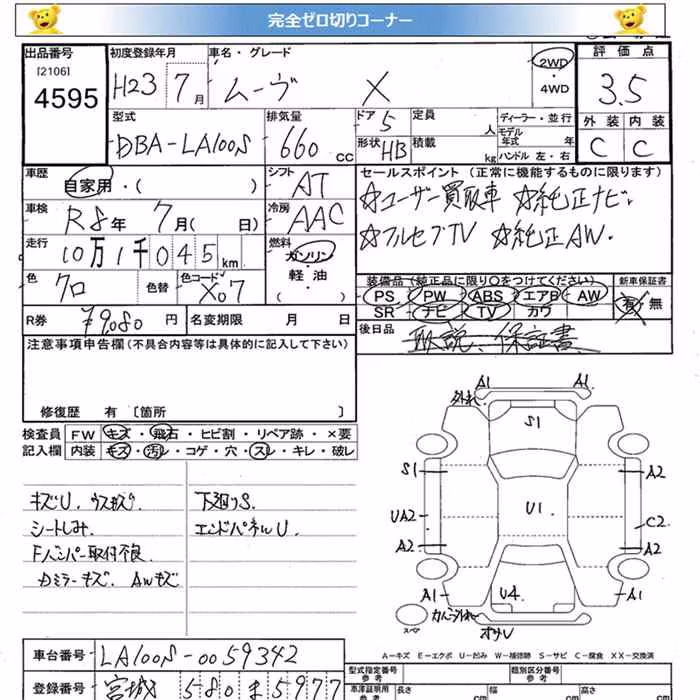 完全ゼロ切りコーナー
出品番号 初度登録年月 車名・グレード 評価点
[2106] 4595 H23 7月 ムーヴ X 2WD・4WD 3.5
型式 排気量 ドア 5 定員 人 ディーラー・並行 外装 内装
DBA-LA100S 660 cc 形状 HB 積載 kg モデル年式 年 ハンドル 左・右 C C
車歴 自家用・( ) シフト AT セールスポイント(正常に機能するものに限ります)
車検 R8年 7月( 日) 冷房 AAC ☆ユーザー買取車 ☆純正ナビ.
走行 10万1千045km 燃料 ガソリン・軽・油 ( ) ☆フルセグTV ☆純正AW.
色 クロ 色替 色コード X07 装備品(純正品に限り○をつけてください) 新車保証書
PS PW ABS エアB AW 有・無
R券 ¥9,080 円 名変期限 月 日 SR ナビ TV カワ
後日品 取説、保証書
注意事項申告欄(不具合内容等は具体的に記入して下さい)
修復歴 有 〔箇所 〕
検査員 FW キズ・飛石・ヒビ割・リペア跡・×要
記入欄 内装 キズ・汚レ・コゲ・穴・スレ・キレ・破レ
キズU. ウスキズ 下廻りS.
シートしみ. エンドパネルU.
Fバンパー取付不良
Dミラーキズ. AWキズ
A1 A1
外れ.
S1
S1 A2
UA2 U1 C2
A2 A2
A1 U4 A1
スペア
A-キズ E-エクボ U-凹み W-補修跡 S-サビ C-腐食 XX-交換済
車台番号 LA100S-0059342 型式指定番号 参考 類別区分番号 参考
登録番号 宮城 580 ま 5977 車庫証明用 参考 長さ cm 幅 cm 高さ cm